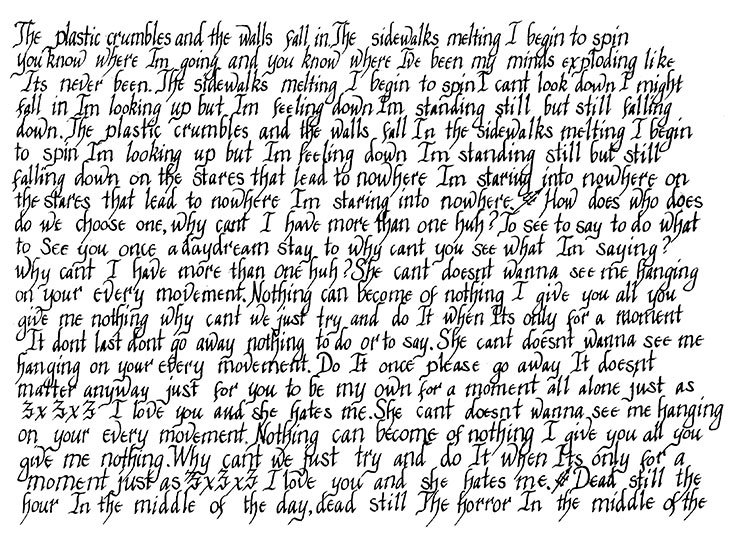 The plastic crumbles and the walls fall in. The sidewalks melting I begin to spin
you know where Im going and you know where Ive been my minds exploding like
Its never been. The sidewalks melting I begin to spin I cant look down I might
fall in Im looking up but Im feeling down Im standing still but still falling
down. The plastic crumbles and the walls fall In the sidewalks melting I begin
to spin Im looking up but Im feeling down Im standing still but still
falling down on the stares that lead to nowhere Im staring into nowhere on
the stares that lead to nowhere Im staring into nowhere. How does who does
do we choose one, why cant I have more than one huh? To see to say to do what
to see you once a daydream stay to why cant you see what Im saying?
why cant I have more than one huh? She cant doesnt wanna see me hanging
on your every movement. Nothing can become of nothing I give you all you
give me nothing why cant we just try and do It when Its only for a moment
It dont last dont go away nothing to do or to say. She cant doesnt wanna see me
hanging on your every movement. Do It once please go away It doesnt
matter anyway just for you to be my own for a moment all alone just as
3x3x3 I love you and she hates me. She cant doesnt wanna see me hanging
on your every movement. Nothing can become of nothing I give you all you
give me nothing. Why cant we just try and do It when Its only for a
moment just as 3x3x3 I love you and she hates me. Dead still the
hour In the middle of the day, dead still The horror In the middle of the